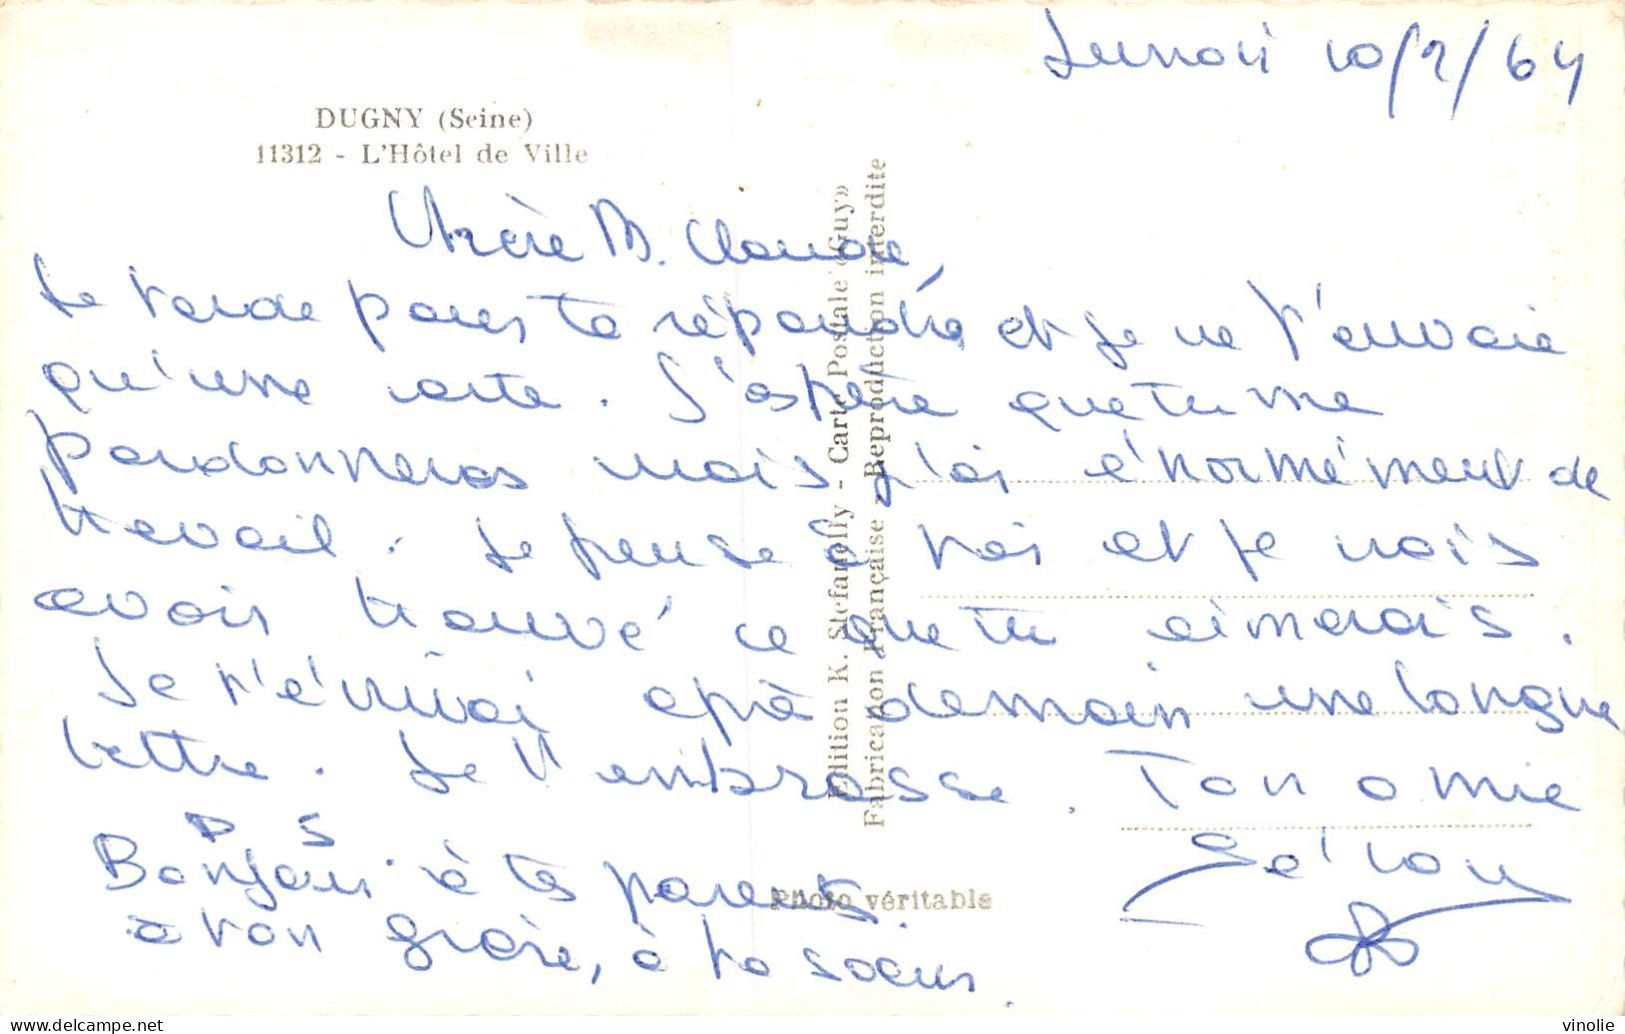 Lundi 10/2/64
DUGNY (Seine)
11312 - L'Hôtel de Ville
Chère M. Claude,
Je tarde pour te répondre et je ne t'envoie
qu'une carte. J'espère que tu me
pardonneras mais j'ai énormément de
travail. Je pense à toi et je vais
avoir trouvé ce que tu aimerais.
Je t'écrirai après demain une longue
lettre. Je t'embrasse. Ton amie
PS
Bonjour à tes parents
à ton frère, à ta soeur.
Edition K. Stefanolly - Carte Postale «Guy»
Fabrication Française - Reproduction interdite
Photo véritable
delcampe.net
vinolie